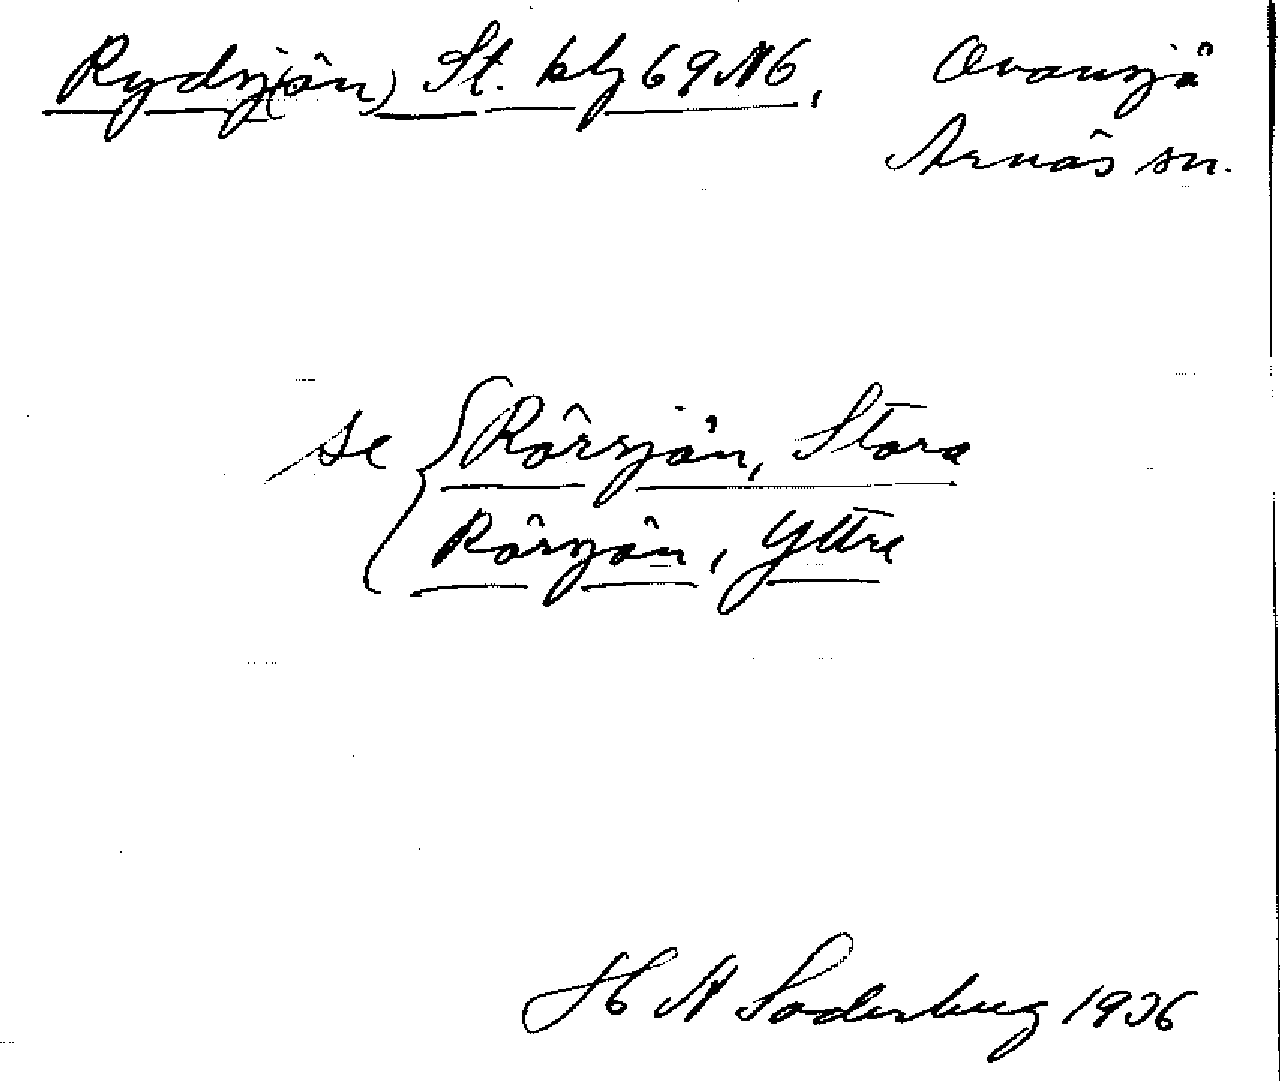 Rydsj(ön) St. blz 69 N6, Ovansjö
Arnäs sn.
se { Rörsjön, Stora
Rörsjön, Yttre
H N Söderberg 1936